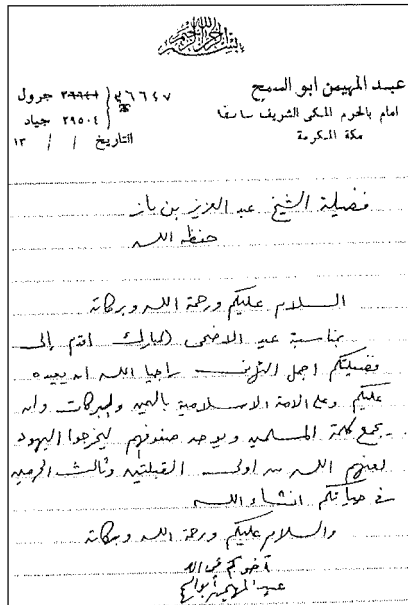 بسم الله الرحمن الرحيم
عبد المهيمن ابو السمح
امام بالحرم المكى الشريف سابقا
مكة المكرمة
٢٦٦٤٧ جرول
٢٩٥٠٤ جياد
التاريخ / / ١٣
فضيلة الشيخ عبد العزيز بن باز
حفظه الله
السلام عليكم ورحمة الله وبركاته
بمناسبة عيد الاضحى المبارك اقدم إلى
فضيلتكم اجمل التهاني راجيا الله ان يعيده
عليكم وعلى الامة الاسلامية باليمن والبركات وان
يجمع كلمة المسلمين ويوحد صفوفهم ليخرجوا اليهود
لعنهم الله من اولى القبلتين وثالث الحرمين
في حياتكم انشاء الله
والسلام عليكم ورحمة الله وبركاته
أخوكم في الله
عبد المهيمن أبو السمح